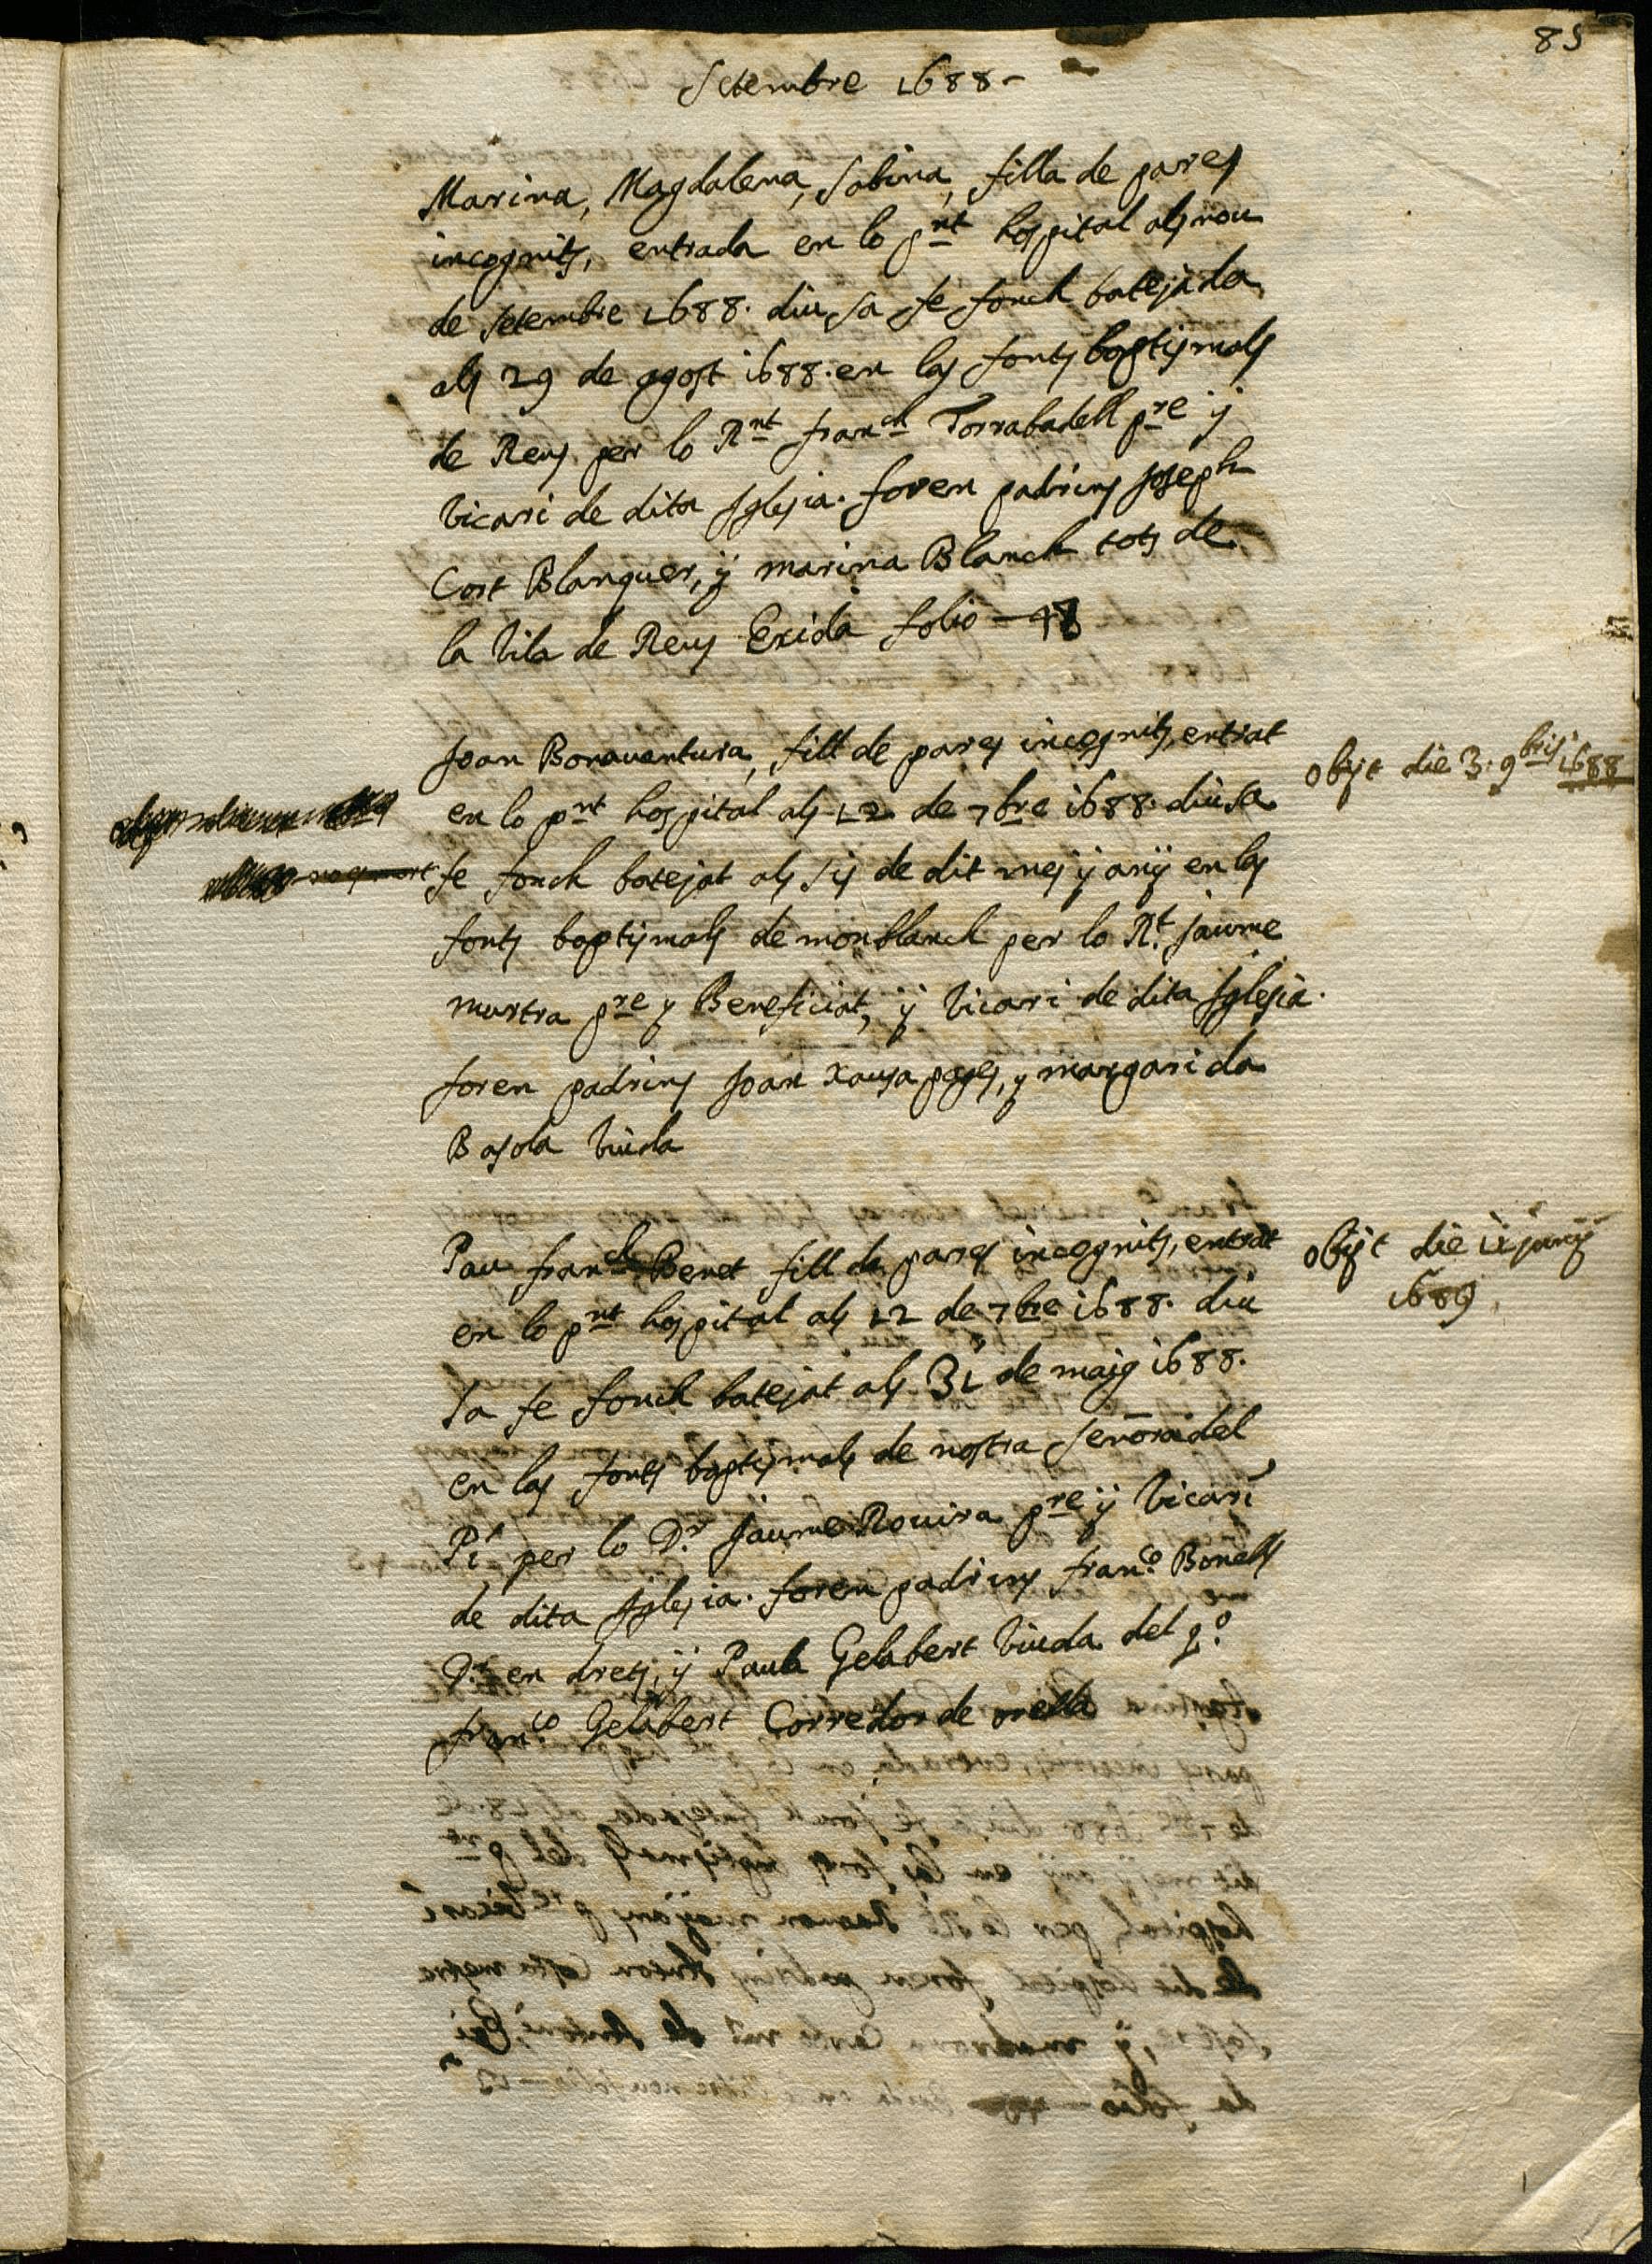 85
Setembre 1688-
Marina, Magdalena, Sabina, filla de pares
incognits, entrada en lo pnt hospital als nou
de setembre 1688. diu sa fe fonch batejada
als 29 de agost 1688. en las fonts baptismals
de Reus per lo Rnt franch Torrabadell pre ÿ
Vicari de dita Iglesia. foren padrins Joseph
Cort Blanquer, ÿ marina Blanch tots de
la Vila de Reus Exida folio — 48
Joan Bonaventura, fill de pares incognits, entrat
en lo pnt hospital als 12 de 7bre 1688. diu sa
fe fonch batejat als sis de dit mes ÿ anÿ en las
fonts baptismals de monblanch per lo Rt. Jaume
murtra pre y Beneficiat, ÿ Vicari de dita Iglesia.
foren padrins Joan Xausa pages, y margarida
Basola Viuda
obijt die 3. 9bris 1688
no es mort
Pau franch Benet fill de pares incognits, entrat
en lo pnt hospital als 12 de 7bre 1688. diu
sa fe fonch batejat als 31 de maig 1688.
en las fonts baptismals de nostra señora del
Pi, per lo Dr. Jaume Rovira pre ÿ Vicari
de dita Iglesia. foren padrins franco. Bonells
Dr. en drets, ÿ Paula Gelabert Viuda del qo.
franco. Gelabert Corredor de orella
obijt die ii junÿ
1689